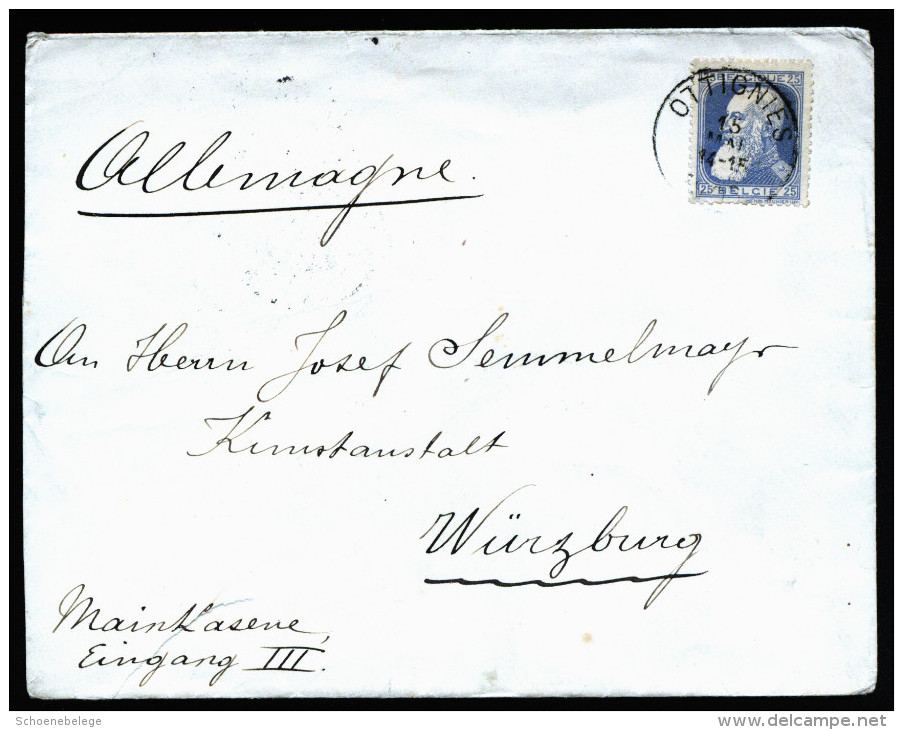 BELGIQUE 25
OTTIGNIES
15
MAI
14-15
25 BELGIE 25
Allemagne.
An Herrn Josef Semmelmayr
Kunstanstalt
Würzburg
Mainkaserne,
Eingang III.
Schoenebelege
delcampe.net